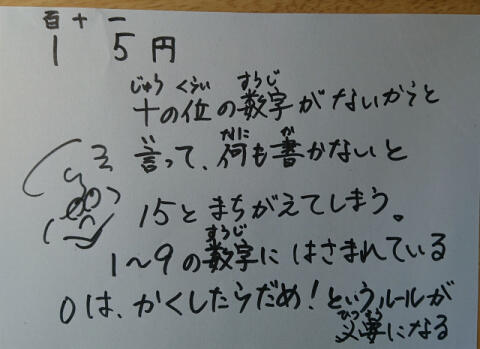 百十一
1 5円
じゅう くらい すうじ
十の位の数字がないからと
い なに か
言って、何も書かないと
15とまちがえてしまう。
すうじ
1〜9の数字にはさまれている
0は、かくしたらだめ!というルールが
ひつよう
必要になる